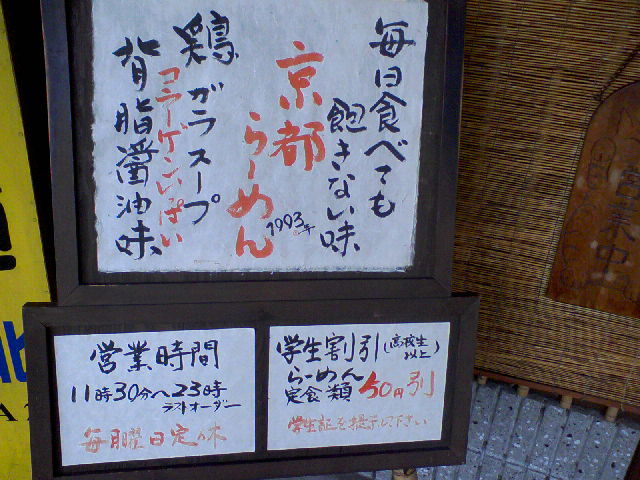 毎日食べても
飽きない味
京都
らーめん
1993年
鶏ガラスープ
コラーゲンいっぱい
背脂醤油味
営業時間
11時30分へ23時
ラストオーダー
毎月曜日定休
学生割引(高校生以上)
らーめん
定食類 50円引
学生証を提示下さい
営業中